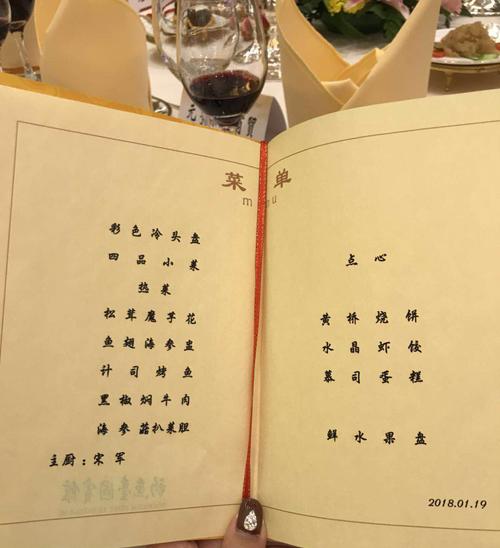 菜单
menu
彩色冷头盘
四品小菜
热菜
松茸魔芋花
鱼翅海参盅
计司烤鱼
黑椒焖牛肉
海参菇扒菜胆
主厨：宋军
钓鱼台国宾馆
点心
黄桥烧饼
水晶虾饺
慕司蛋糕
鲜水果盘
2018.01.19